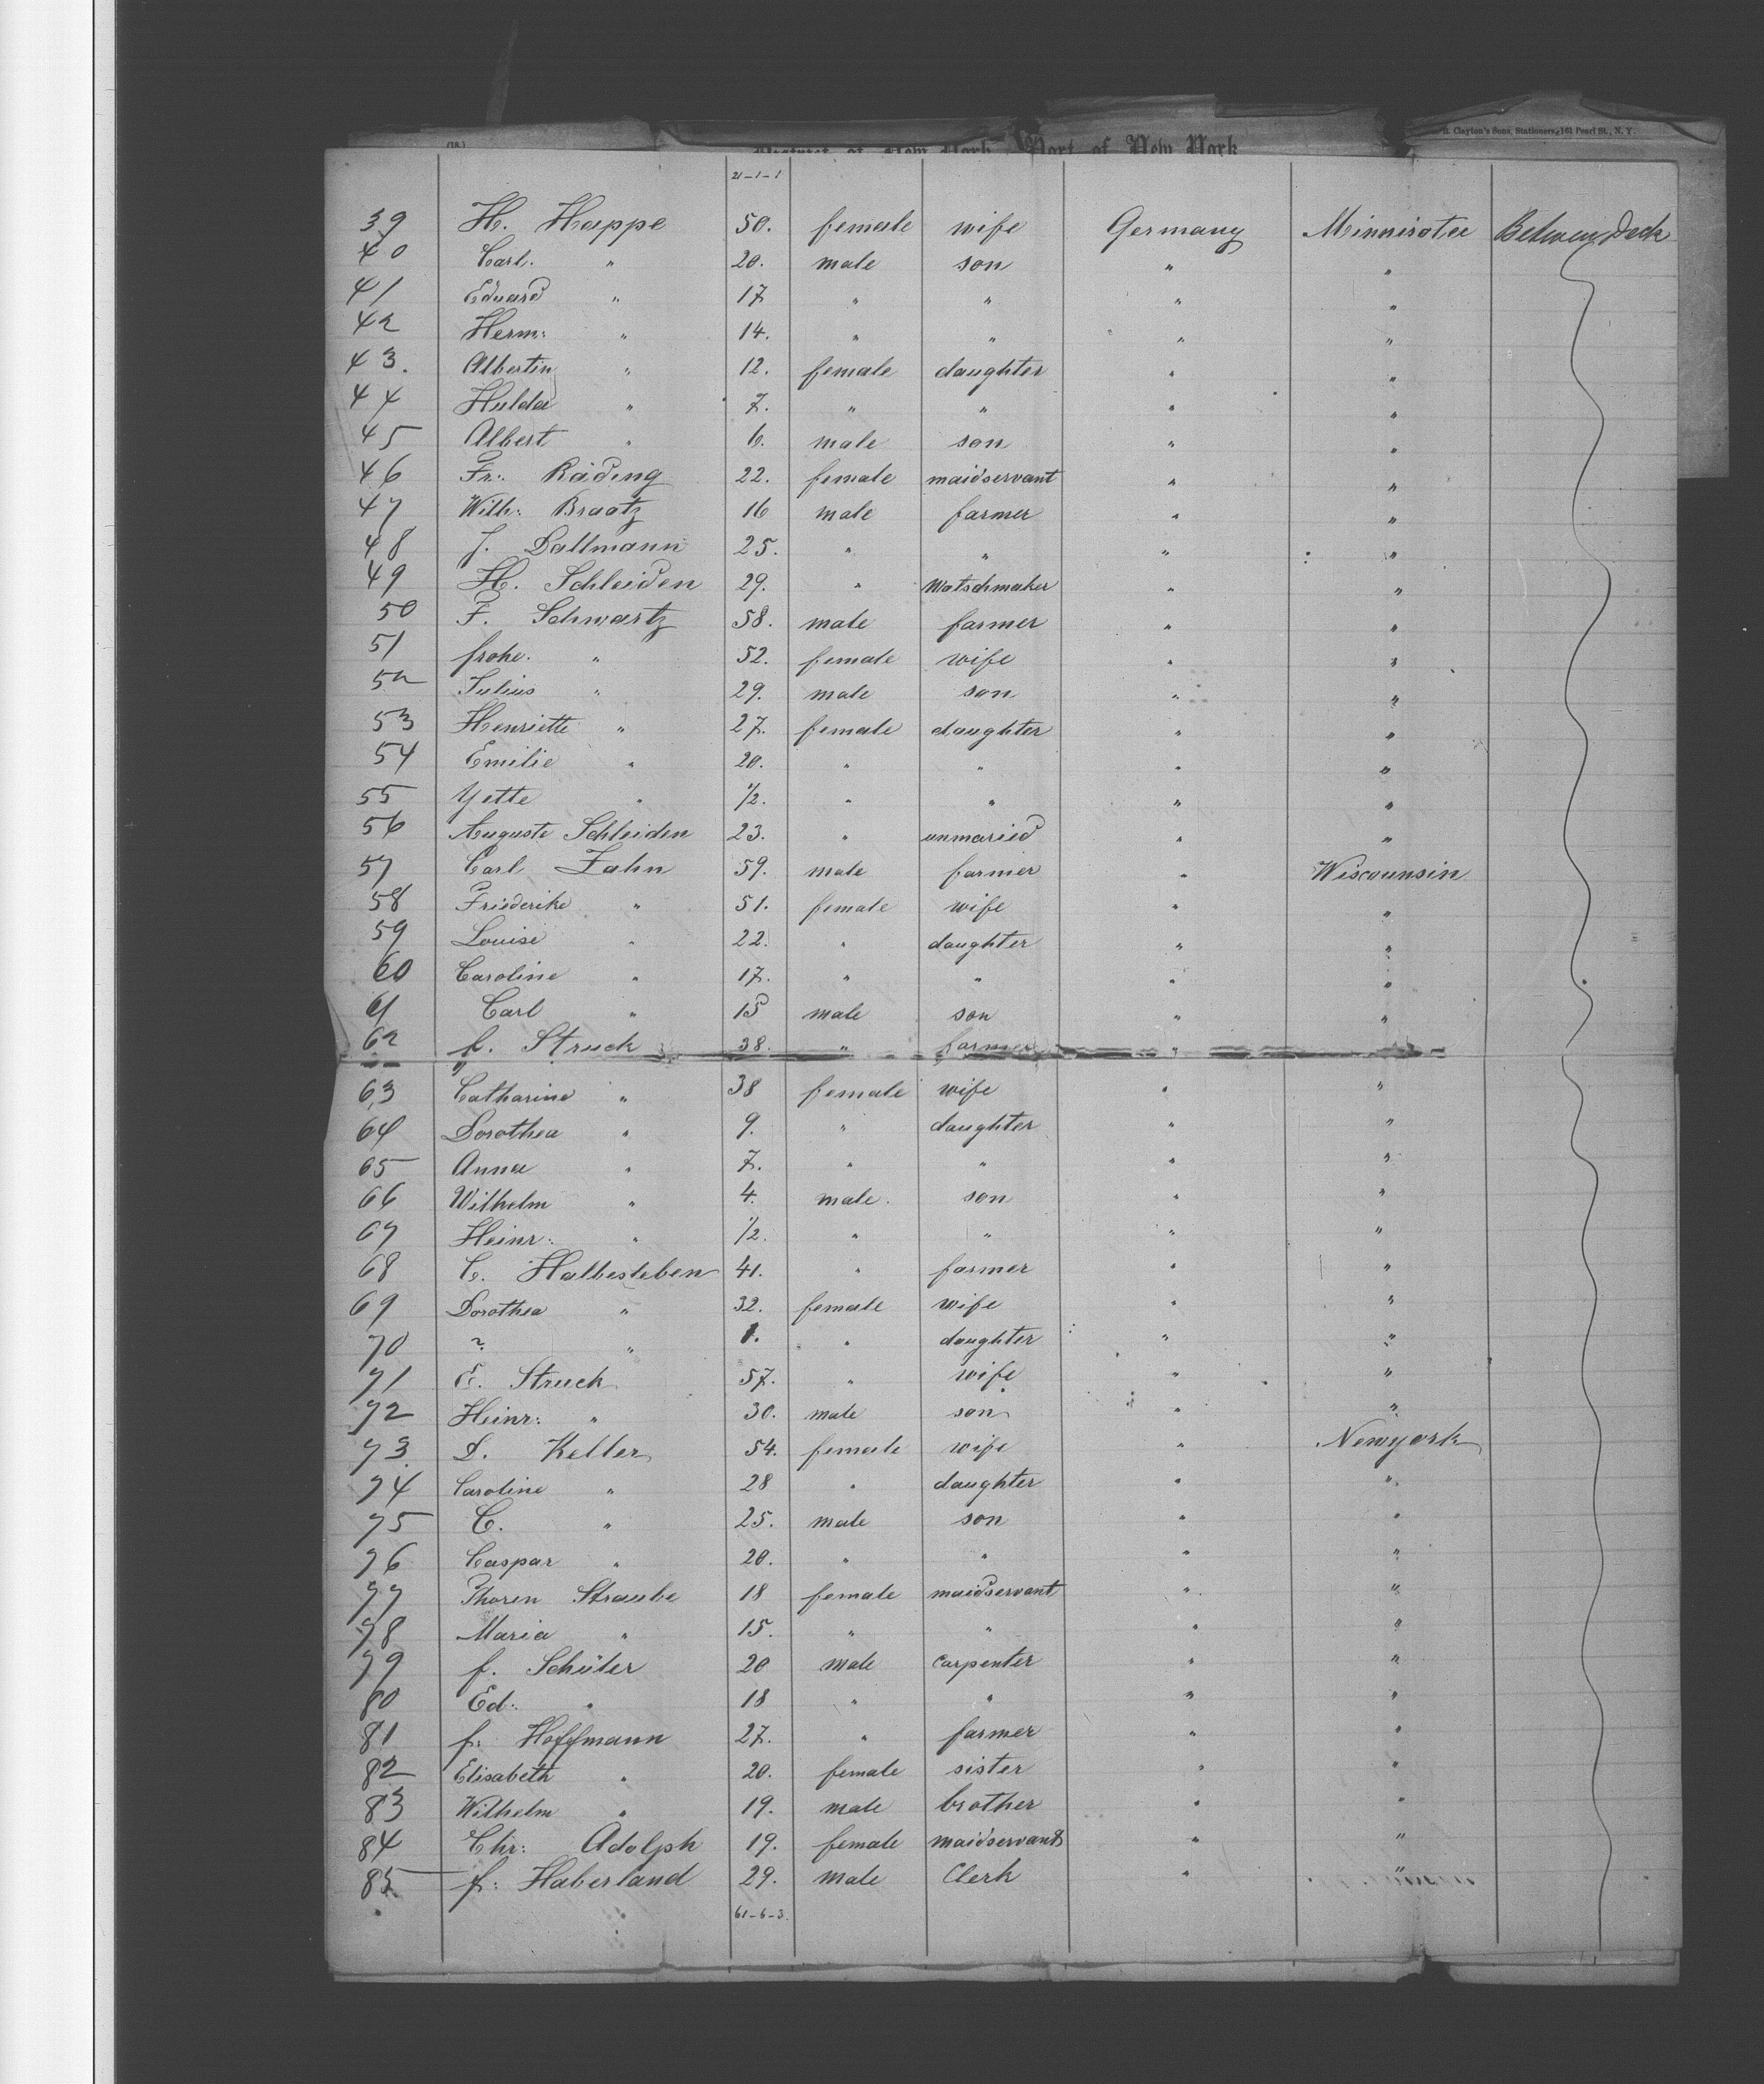 B. Clayton's Sons, Stationers, 161 Pearl St., N. Y.
(18.) District of New York, Port of New York
21-1-1
39 H. Happe 50. female wife Germany Minnisotee Between Deck
40 Carl. " 20. male son " "
41 Eduard " 17 " " " "
42 Herm: " 14. " " " "
43. Albertin " 12. female daughter " "
44 Hulda " 7. " " " "
45 Albert " 6. male son " "
46 Fr: Räding 22. female maidservant " "
47 Wilh: Braatz 16 male farmer " "
48 J. Dallmann 25. " " " "
49 H. Schleiden 29. " Watschmaker " "
50 F. Schwartz 58. male farmer " "
51 frohe. " 52. female wife " "
52 Julius " 29. male son " "
53 Henriette " 27. female daughter " "
54 Emilie " 20. " " " "
55 Yette " 1/2. " " " "
56 Auguste Schleiden 23. " unmaried " "
57 Carl Zahn 59. male farmer " Wiscounsin
58 Friederike " 51. female wife " "
59 Louise " 22. " daughter " "
60 Caroline " 17. " " " "
61 Carl " 15 male son " "
62 f. Struck 38. " farmer "
63 Catharine " 38 female wife " "
64 Dorothea " 9. " daughter " "
65 Anna " 7. " " " "
66 Wilhelm " 4. male. son " "
67 Heinr: " 1/2. " " " "
68 C. Halbesleben 41. " farmer " "
69 Dorothea " 32. female wife " "
70 ? " 1. " daughter " "
71 E. Struck 57. " wife " "
72 Heinr: " 30. male son " "
73. D. Keller 54. female wife " Newyork
74 Caroline " 28 " daughter " "
75 C. " 25. male son " "
76 Caspar " 20. " " " "
77 Thoren Straube 18 female maidservant " "
78 Maria " 15. " " " "
79 f. Schüler 20 male Carpenter " "
80 Ed: " 18 " " " "
81 f: Hoffmann 27. " farmer " "
82 Elisabeth " 20. female sister " "
83 Wilhelm " 19. male brother " "
84 Chr: Adolph 19. female maidservant " "
85 f: Haberland 29. male Clerk " "
61-6-3.